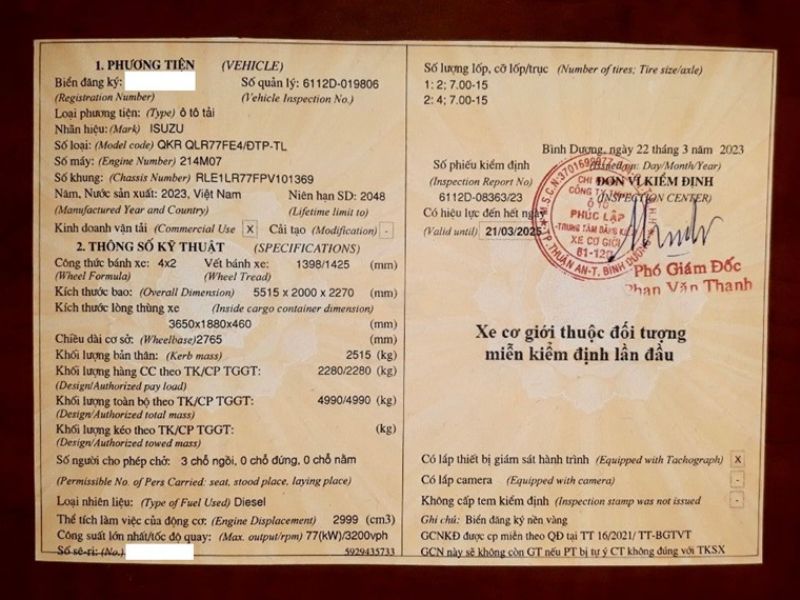 1. PHƯƠNG TIỆN (VEHICLE)
Biển đăng ký:
Số quản lý: 6112D-019806
(Registration Number) (Vehicle Inspection No.)
Loại phương tiện: (Type) ô tô tải
Nhãn hiệu: (Mark) ISUZU
Số loại: (Model code) QKR QLR77FE4/ĐTP-TL
Số máy: (Engine Number) 214M07
Số khung: (Chassis Number) RLE1LR77FPV101369
Năm, Nước sản xuất: 2023, Việt Nam Niên hạn SD: 2048
(Manufactured Year and Country) (Lifetime limit to)
Kinh doanh vận tải (Commercial Use) X Cải tạo (Modification) -
2. THÔNG SỐ KỸ THUẬT (SPECIFICATIONS)
Công thức bánh xe: 4x2 Vết bánh xe: 1398/1425 (mm)
(Wheel Formula) (Wheel Tread)
Kích thước bao: (Overall Dimension) 5515 x 2000 x 2270 (mm)
Kích thước lòng thùng xe (Inside cargo container dimension)
3650x1880x460 (mm)
Chiều dài cơ sở: (Wheelbase) 2765 (mm)
Khối lượng bản thân: (Kerb mass) 2515 (kg)
Khối lượng hàng CC theo TK/CP TGGT: 2280/2280 (kg)
(Design/Authorized pay load)
Khối lượng toàn bộ theo TK/CP TGGT: 4990/4990 (kg)
(Design/Authorized total mass)
Khối lượng kéo theo TK/CP TGGT: (kg)
(Design/Authorized towed mass)
Số người cho phép chở: 3 chỗ ngồi, 0 chỗ đứng, 0 chỗ nằm
(Permissible No. of Pers Carried: seat, stood place, laying place)
Loại nhiên liệu: (Type of Fuel Used) Diesel
Thể tích làm việc của động cơ: (Engine Displacement) 2999 (cm3)
Công suất lớn nhất/tốc độ quay: (Max. output/rpm) 77(kW)/3200vph
Số sê-ri: (No.) 5929435733
Số lượng lốp, cỡ lốp/trục (Number of tires; Tire size/axle)
1: 2; 7.00-15
2: 4; 7.00-15
Bình Dương, ngày 22 tháng 3 năm 2023
(Issued on: Day/Month/Year)
Số phiếu kiểm định ĐƠN VỊ KIỂM ĐỊNH
(Inspection Report No) (INSPECTION CENTER)
6112D-08363/23
Có hiệu lực đến hết ngày
(Valid until) 21/03/2025
M.S.C.N:3701699977
CÔNG TY
Ô TÔ
PHÚC LẬP
-TRUNG TÂM ĐĂNG KIỂM
XE CƠ GIỚI
61-12D
TP.THUẬN AN-T. BÌNH DƯƠNG
Phó Giám Đốc
Phan Văn Thanh
Xe cơ giới thuộc đối tượng
miễn kiểm định lần đầu
Có lắp thiết bị giám sát hành trình (Equipped with Tachograph) X
Có lắp camera (Equipped with camera) -
Không cấp tem kiểm định (Inspection stamp was not issued -
Ghi chú: Biển đăng ký nền vàng
GCNKĐ được cp miễn theo QĐ tại TT 16/2021/ TT-BGTVT
GCN này sẽ không còn GT nếu PT bị tự ý CT không đúng với TKSX